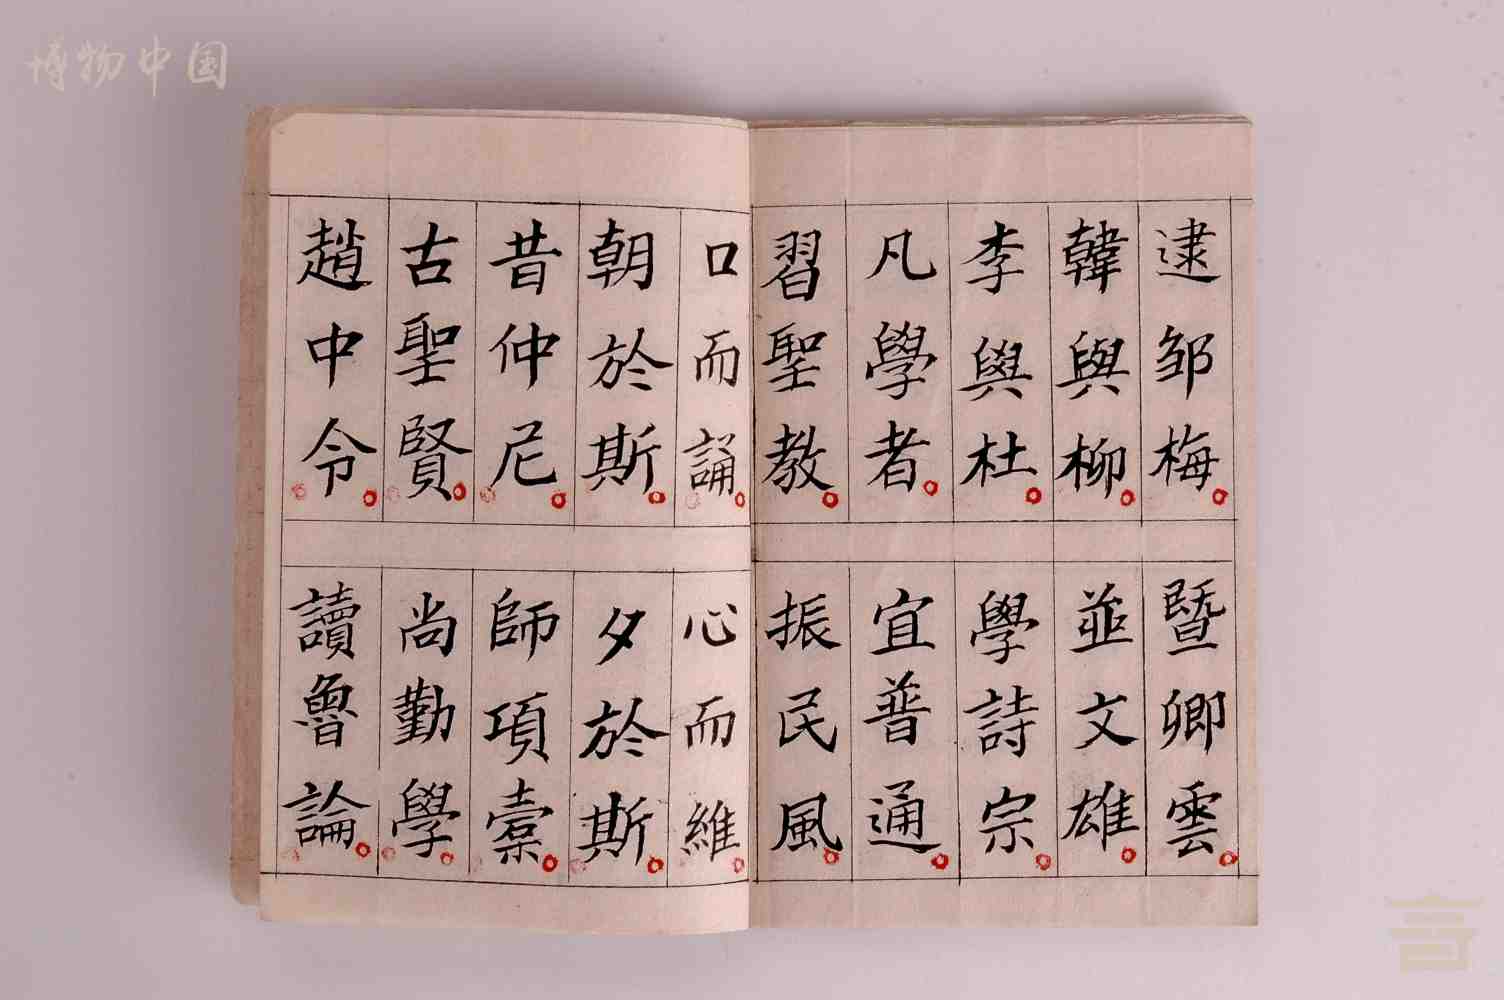 博物中国
逮邹梅 暨卿雲
韓與柳 並文雄
李與杜 學詩宗
凡學者 宜普通
習聖教 振民風
口而誦 心而維
朝於斯 夕於斯
昔仲尼 師項橐
古聖賢 尚勤學
趙中令 讀魯論